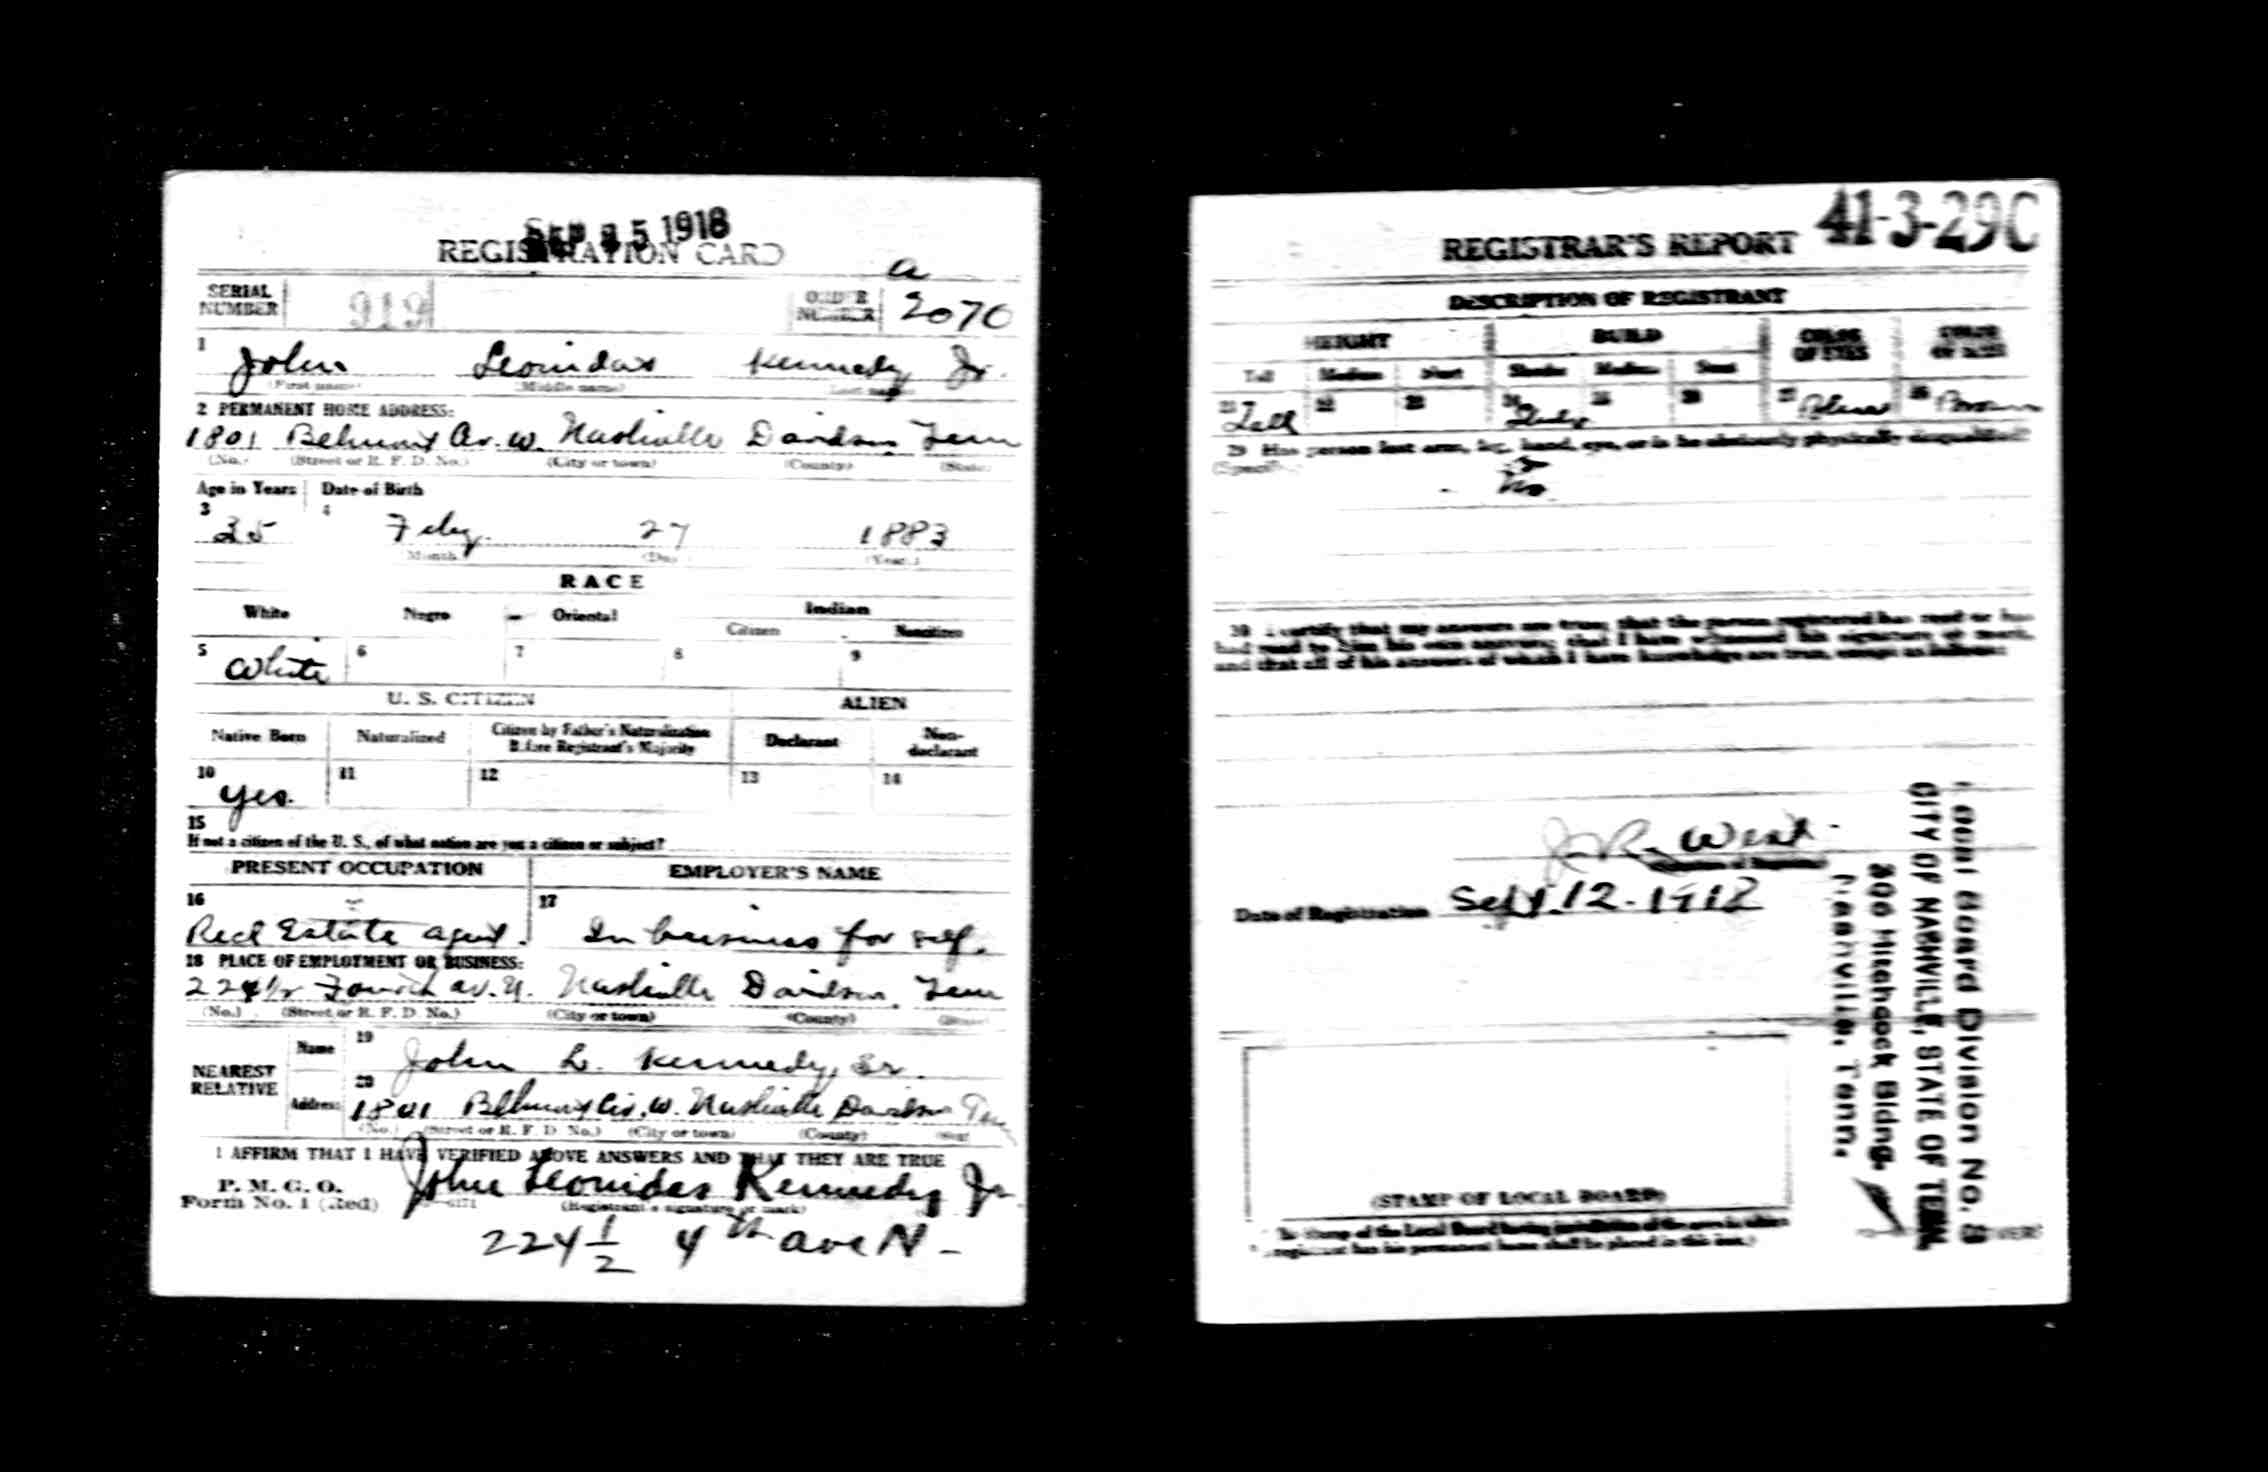 SEP 5 1918
REGISTRATION CARD
a
SERIAL NUMBER 919 ORDER NUMBER 2070
1 John Leonidas Kennedy Jr.
(First name) (Middle name) (Last name)
2 PERMANENT HOME ADDRESS:
1801 Belmont Av. W. Nashville Davidson Tenn
(No.) (Street or R. F. D. No.) (City or town) (County) (State)
Age in Years Date of Birth
3 35 4 Feby. 27 1883
(Month) (Day) (Year.)
RACE
White Negro Oriental Indian
Citizen Noncitizen
5 White 6 7 8 9
U. S. CITIZEN ALIEN
Native Born Naturalized Citizen by Father's Naturalization Before Registrant's Majority Declarant Non-declarant
10 yes. 11 12 13 14
15
If not a citizen of the U. S., of what nation are you a citizen or subject?
PRESENT OCCUPATION EMPLOYER'S NAME
16 17
Real Estate agent. In business for self.
18 PLACE OF EMPLOYMENT OR BUSINESS:
224 1/2 Fourth av. N. Nashville Davidson Tenn
(No.) (Street or R. F. D. No.) (City or town) (County) (State)
NEAREST RELATIVE
Name 19 John L. Kennedy, Sr.
Address 20 1801 Belmont Av. W. Nashville Davidson Tenn
(No.) (Street or R. F. D. No.) (City or town) (County) (State)
I AFFIRM THAT I HAVE VERIFIED ABOVE ANSWERS AND THAT THEY ARE TRUE
P. M. G. O.
Form No. 1 (Red) John Leonidas Kennedy Jr
(Registrant's signature or mark)
224 1/2 4th ave N -
41-3-29C
REGISTRAR'S REPORT
DESCRIPTION OF REGISTRANT
HEIGHT BUILD COLOR OF EYES COLOR OF HAIR
Tall Medium Short Slender Medium Stout
21 Tall 22 23 24 25 26 27 Blue 28 Brown
29 Has person lost arm, leg, hand, eye, or is he obviously physically disqualified?
(Specify.)
No
30 I certify that my answers are true; that the person registered has read or has
had read to him his own answers; that I have witnessed his signature or mark,
and that all of his answers of which I have knowledge are true, except as follows:
J. R. West
(Signature of Registrar)
Date of Registration Sept. 12 - 1918
Local Board Division No.
CITY OF NASHVILLE, STATE OF TENN.
306 Hitchcock Bldng.
Nashville, Tenn.
(STAMP OF LOCAL BOARD)
The stamp of the Local Board having jurisdiction of the area in which
registrant has his permanent home shall be placed in this box.)